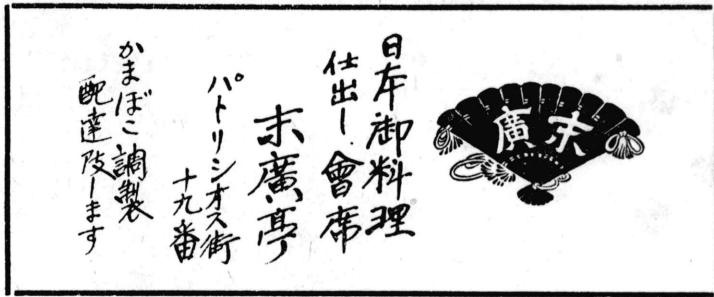 末廣
日本御料理
仕出し.會席
末廣亭
パトリシオス街
十九番
かまぼこ調製
配達致します